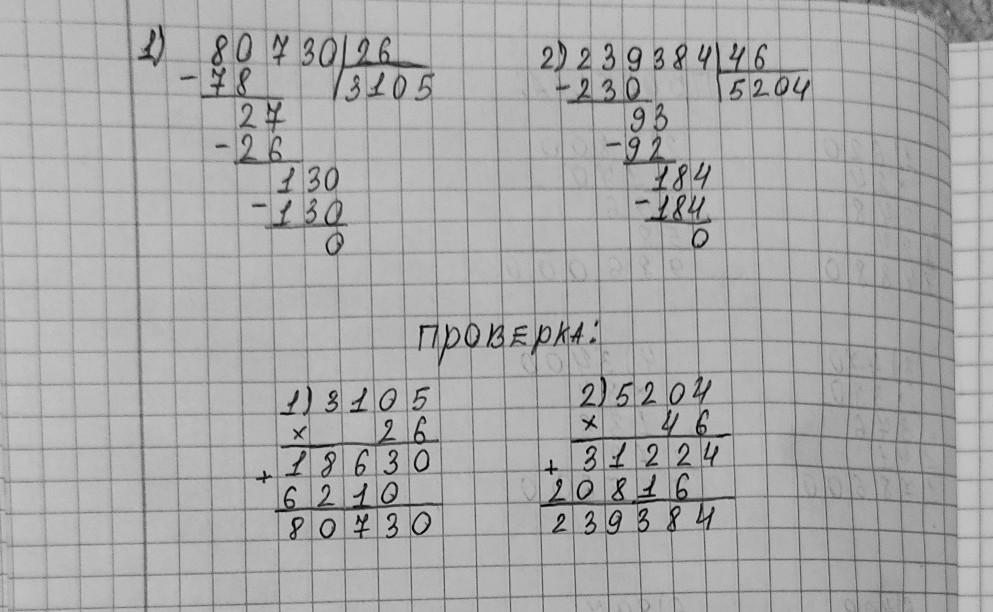 1) 80730 26
- 78 3105
27
- 26
130
- 130
0
2) 239384 46
- 230 5204
93
- 92
184
- 184
0
ПРОВЕРКА:
1) 3105
× 26
+ 18630
6210
80730
2) 5204
× 46
+ 31224
20816
239384